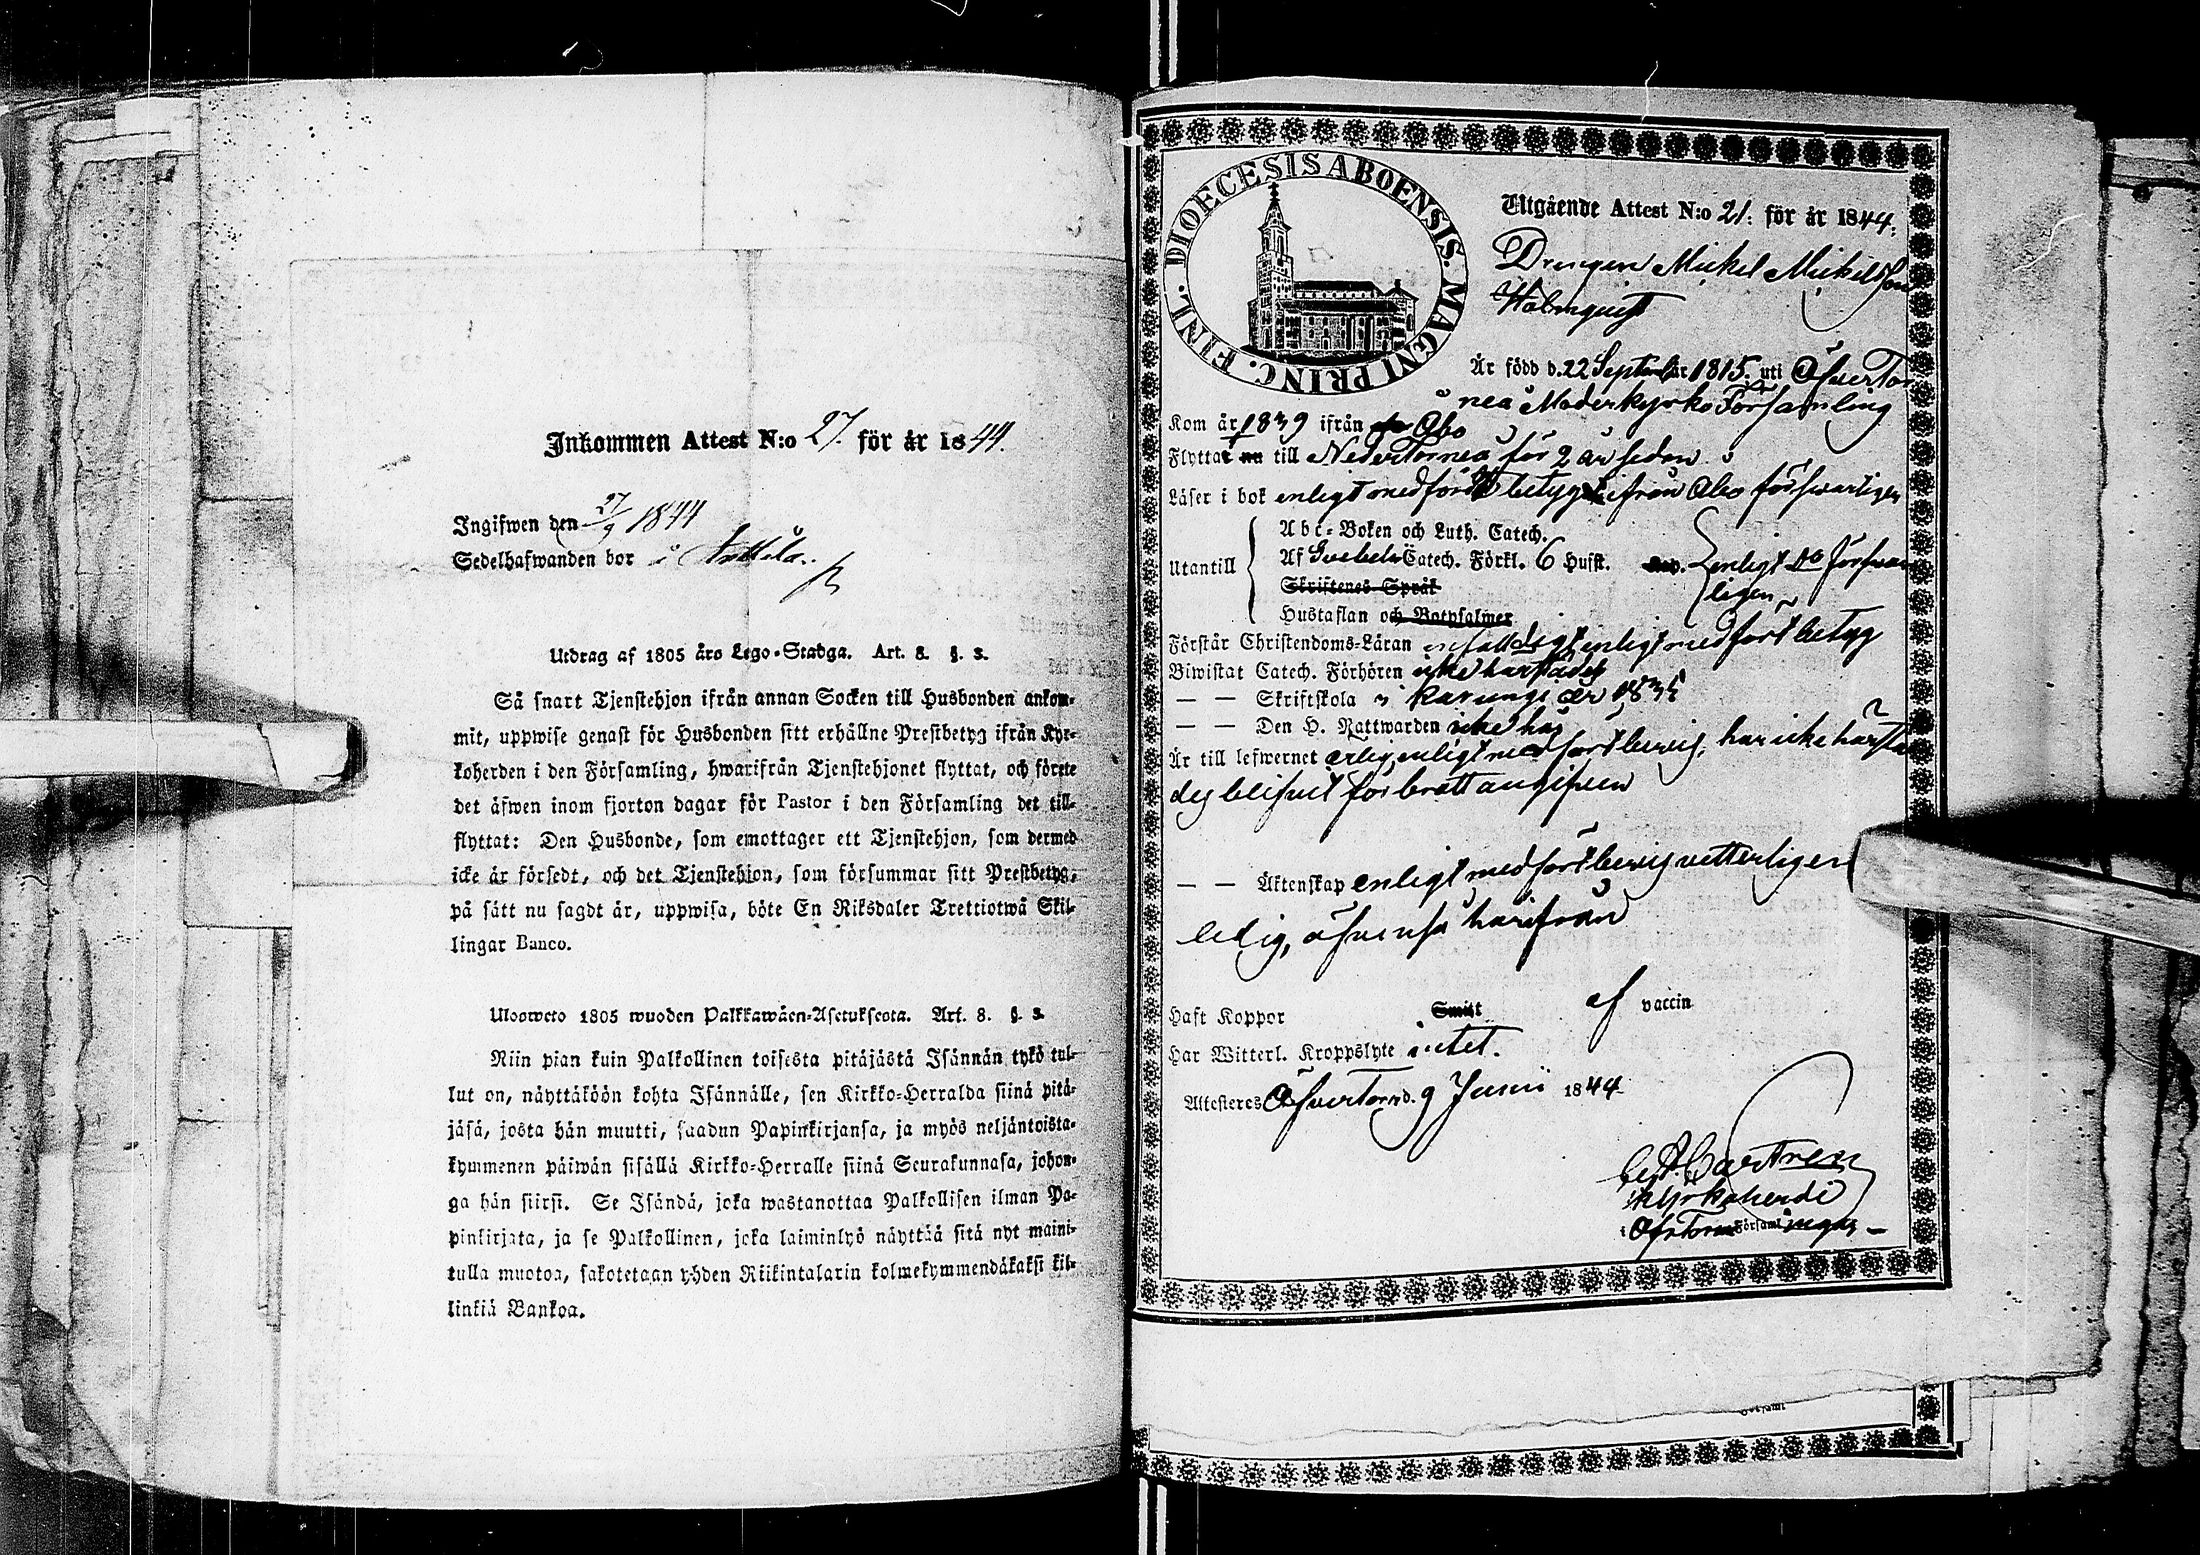 Inkommen Attest N:o 27. för år 1844.
Ingifwen den 27/9 1844
Sedelhafwanden bor i
Utdrag af 1805 års Lego-Stadga. Art. 8. §. 3.
Så snart Tjenstehjon ifrån annan Socken till Husbonden ankom-
mit, uppwise genast för Husbonden sitt erhållne Prestbetyg ifrån Kyr-
koherden i den Församling, hwarifrån Tjenstehjonet flyttat, och förete
det äfwen inom fjorton dagar för Pastor i den Församling det till-
flyttat: Den Husbonde, som emottager ett Tjenstehjon, som dermed
icke är försedt, och det Tjenstehjon, som försummar sitt Prestbetyg,
på sätt nu sagdt är, uppwisa, böte En Riksdaler Trettiotwå Skil-
lingar Banco.
Ulosweto 1805 wuoden Palkkawäen-Asetuksesta. Art. 8. §. 3.
Niin pian kuin Palkollinen toisesta pitäjästä Isännän tykö tul-
lut on, näyttäköön kohta Isännälle, sen Kirkko-Herralda siinä pitä-
jäsä, josta hän muutti, saadun Papinkirjansa, ja myös neljäntoista-
kymmenen päiwän sisällä Kirkko-Herralle siinä Seurakunnasa, johon-
ga hän siirsi. Se Isändä, joka wastanottaa Palkollisen ilman Pa-
pinkirjata, ja se Palkollinen, joka laiminlyö näyttää sitä nyt maini-
tulla muotoa, sakotetaan yhden Riikintalarin kolmekymmendäkaksi kil-
linkiä Bankoa.
DIOECESIS ABOENSIS. MAGNI PRINC. FINL.
Utgående Attest N:o 21. för år 1844.
Drengen Mickel Mickelsson
Holmquist
Är född d. 22 September 1815. uti Öfver Tor
neå Moderkyrko Församling
Kom år 1839 ifrån Åbo
Flyttat nu till Neder Torneå för 2 år sedan
Läser i bok enligt medfördt betyg ifrån Åbo försvarligen
Abc-Boken och Luth. Catech.
Utantill Af Svebelii Catech. Förkl. 6 Hufst. enligt do försvar
Skriftenes Språk ligen
Hustaflan och Botpsalmer
Förstår Christendoms-Läran enfaldigt enligt medfört betyg
Biwistat Catech. Förhören icke härstädes
— — Skriftskola i Karungi år 1835
— — Den H. Nattwarden icke här
Är till lefwernet ärlig enligt medfört bevis, har icke härstä
des blifvit för brott angifven
— — Äktenskap enligt medfört bevis vetterligen
ledig, äfvenså härifrån
Haft Koppor Smitt af vaccin
Har Witterl. Kroppslyte intet.
Attesteres Öfver Torneå d. 9 Junii 1844
Castren
Kyrkoherde
i Öfr Torneå Församlingar